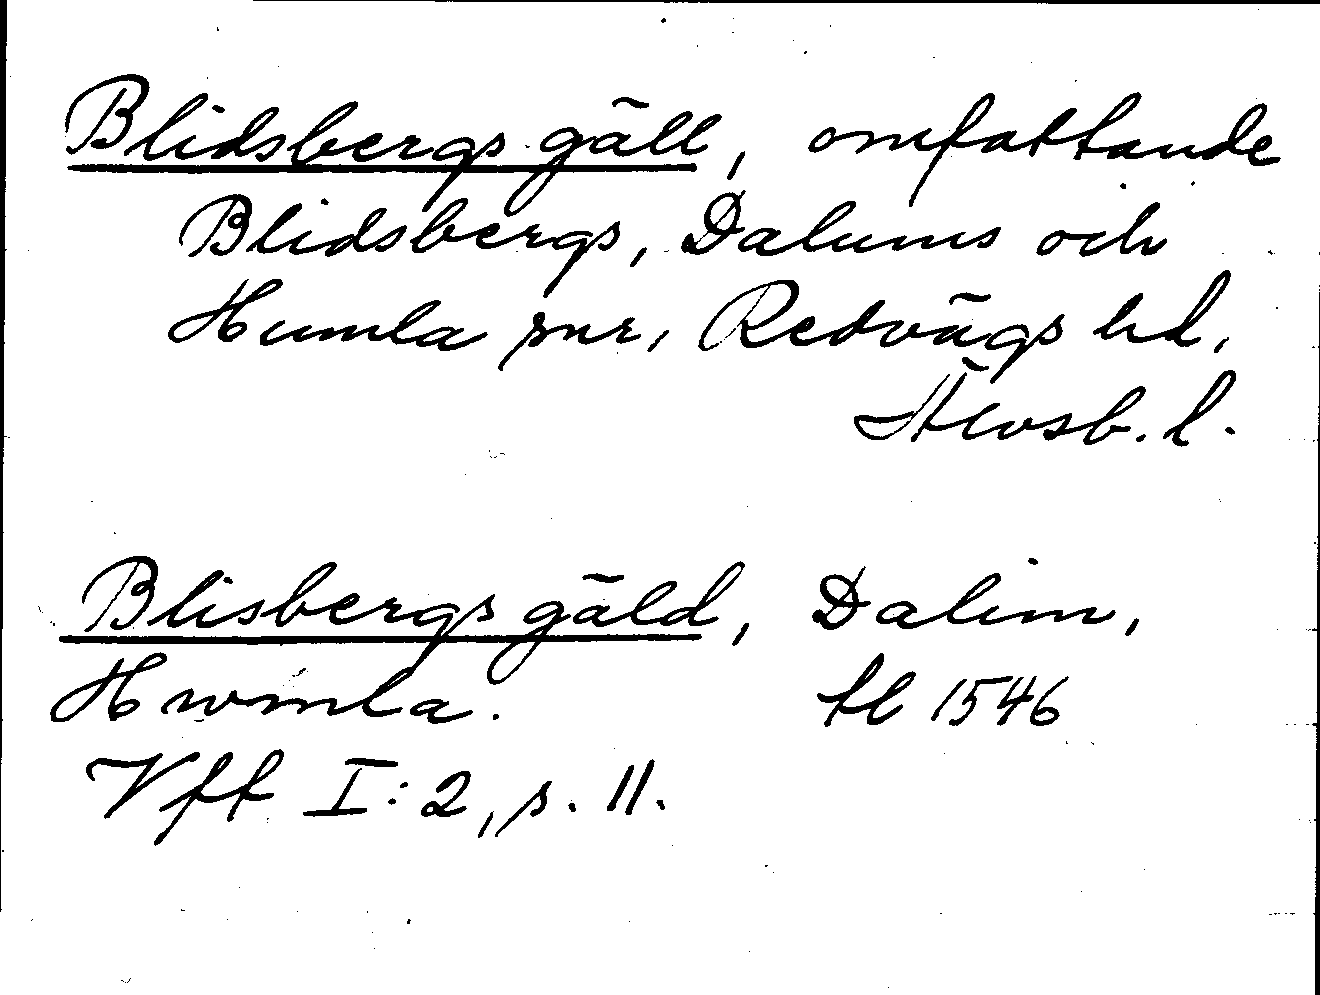 Blidsbergs gäll, omfattande
Blidsbergs, Dalums och
Humla snr, Redvägs hd,
Älvsb. l.
Blisbergs gäld, Dalim,
Hwmla. tl 1546
Vff I:2, s. 11.